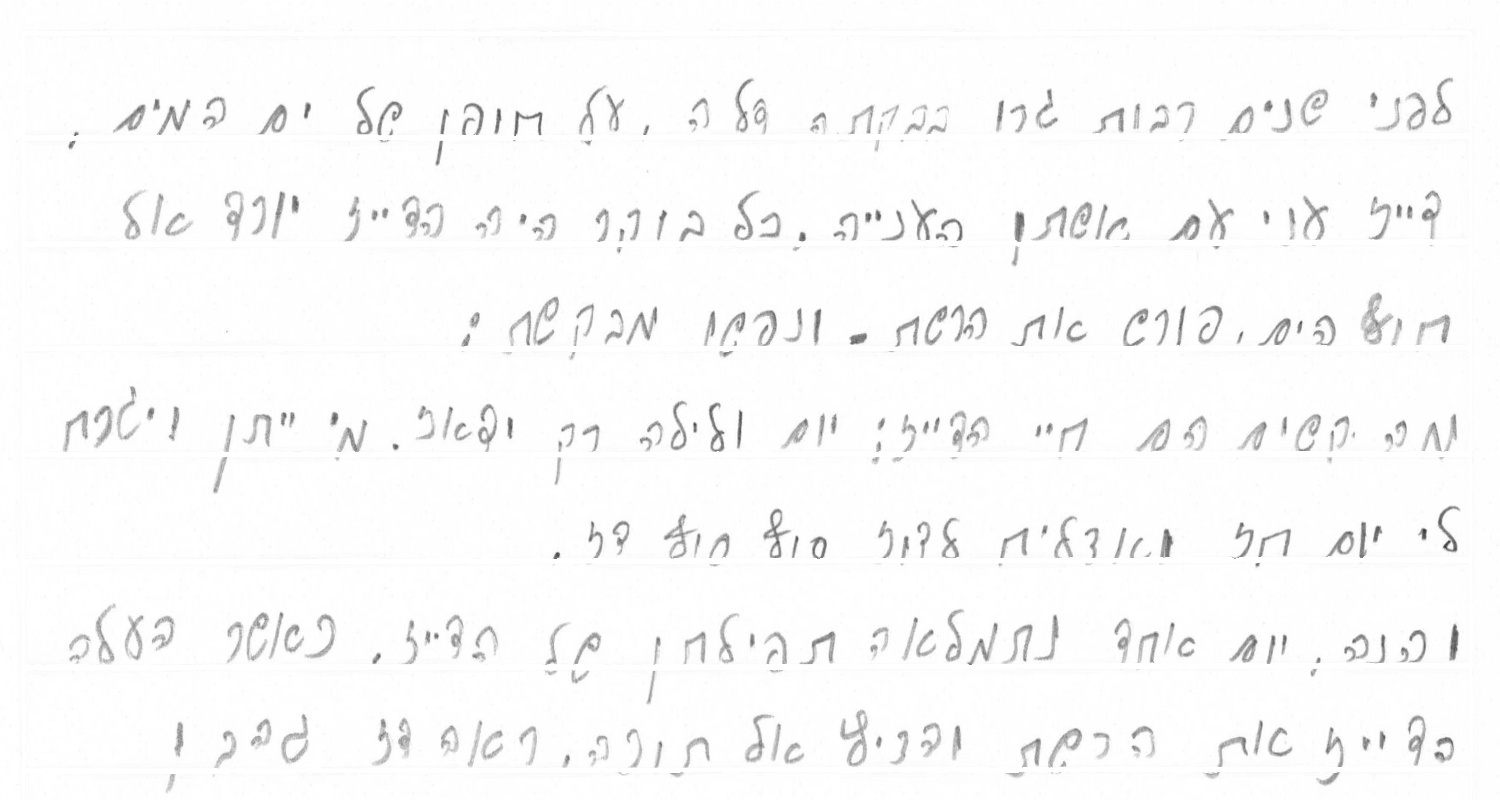 לפני שנים רבות גרו בבקתה דלה, על חופן של ים המים,
דייג עני עם אשתן הענייה. כל בוקר היה הדייג יורד אול
חוף הים, פורש את הרשת - ונפשו מבקשת:
מה קשים הם חיי הדייג: יום ולילה רק ודאג. מי ייתן ויגרה
לי יום חג ואצליח לדוג סוף סוף דג.
והנה, יום אחד נתמלאה תפילתן של הדייג. כאשר העלה
הדייג את הרשת והניף אל תורה, ראה דג גבה